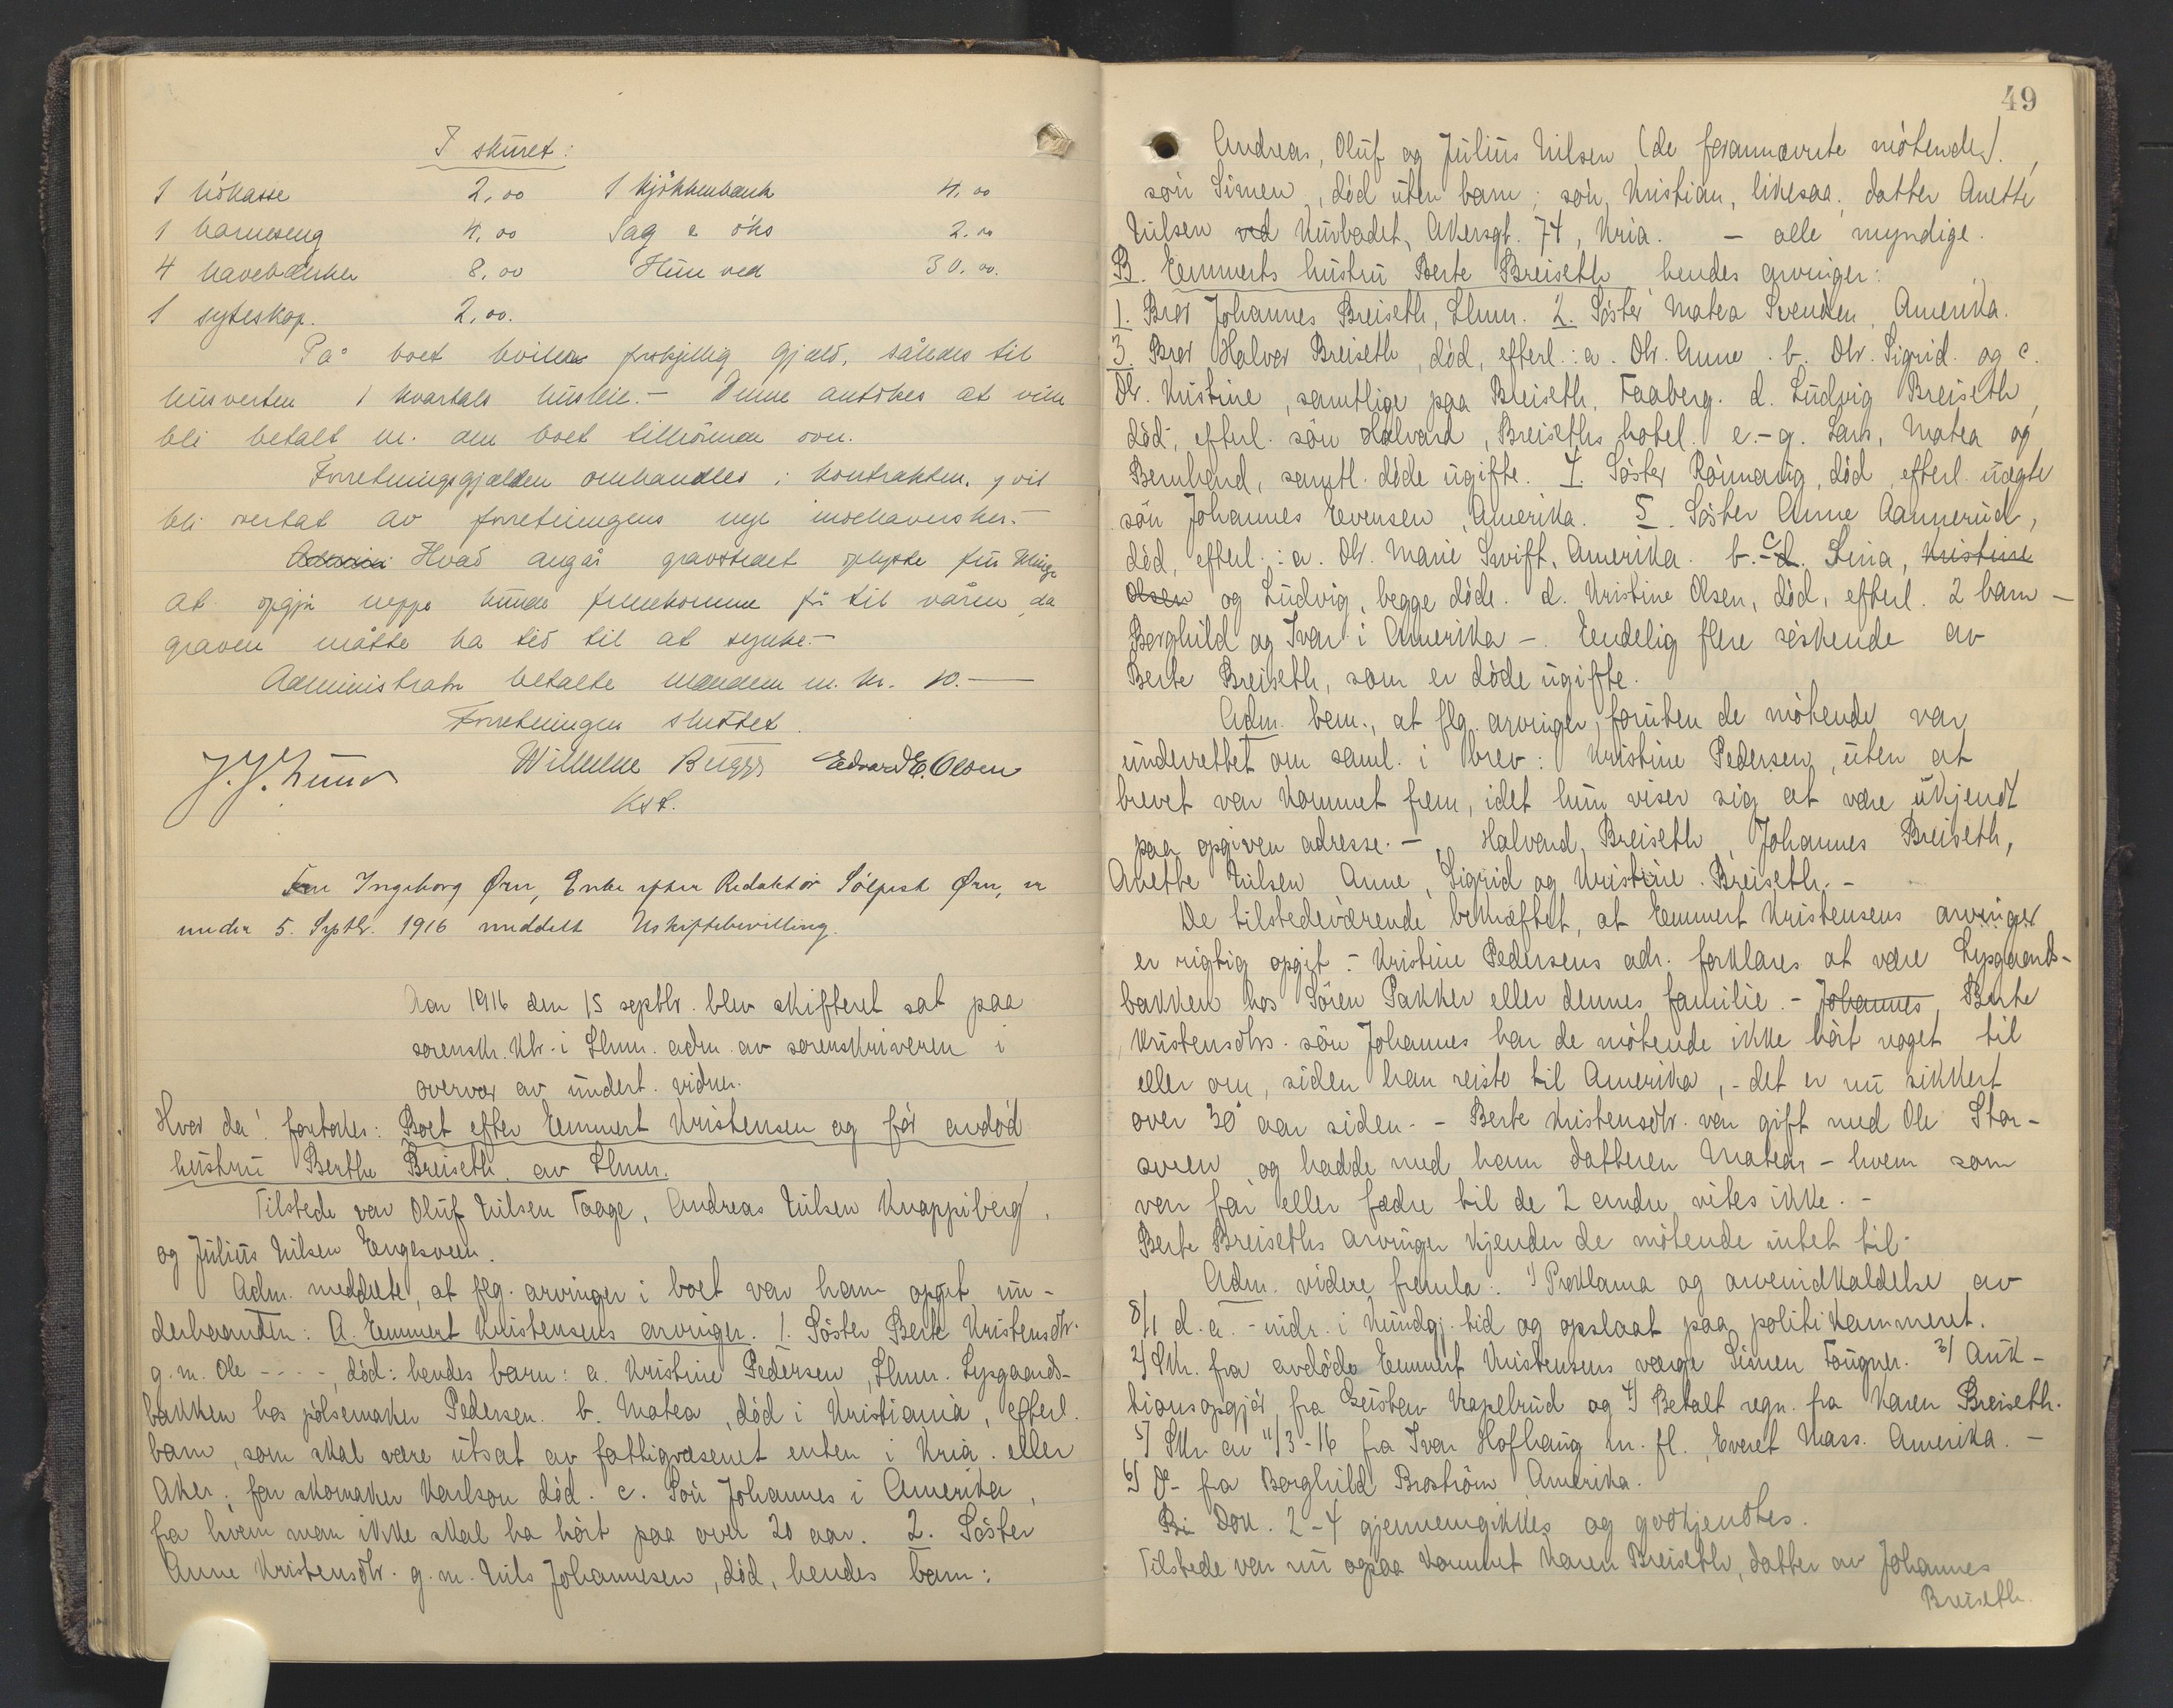 I skuret:
1 kökasse 2,00 1 kjökkenbænk 4.00
1 barneseng 4,00 Sag & öks 2.00
4 havebænker 8,00 ved 30.00.
1 syteskap. 2,00.
På boet hviler forskjellig gjæld, således til
husverten 1 kvartals husleie. – Denne antökes at ville
bli betalt m. den boet tilhörende ovn.
Forretningsgjælden omhandles i kontrakten, & vil
bli overtat av forretningens nye indehaversker. –
Hvad angår gravstedet oplyste fru
at opgjör neppe kunde fremkomme för til våren, da
graven måtte ha tid til at synke. –
Administrator betalte mændene m. kr. 10. –
Forretningen sluttet.
J. J. Lund Wilhelm Bugge Edvard E. Olsen
Kst.
Fru Ingeborg Ørn, Enke efter Redaktör Sölfest Ørn, er
under 5. Septbr. 1916 meddelt Uskiftebevilling.
Aar 1916 den 15 septbr. blev skifteret sat paa
sorenskr. ktr. i Lhmr. adm. av sorenskriveren i
overvær av undert. vidner.
Hvor da! foretokes: Boet efter Emmert Kristensen og för avdöd
hustru Berthe Breiseth av Lhmr.
Tilstede var Oluf Nilsen Faage, Andreas Nilsen Knappiberg,
og Julius Nilsen Engesveen.
Adm. meddelte, at flg. arvinger i boet var ham opgit un-
derhaanden: A. Emmert Kristensens arvinger. 1. Söster Berte Kristensdtr.
g. m. Ole - - - -, död: hendes barn: a. Kristine Pedersen, Lhmr. Lysgaards-
bakken hos pölsemaker Pedersen. b. Matea, död i Kristiania, efterl.
barn, som skal være utsat av fattigvæsenet enten i Kria. eller
Aker; far skomaker Karlson död. c. Sön Johannes i Amerika,
fra hvem man ikke skal ha hört paa over 20 aar. 2. Söster
Anne Kristensdtr. g. m. Nils Johannesen, död, hendes barn:
49
Andreas, Oluf og Julius Nilsen (de forannævnte mötende).
sön Simen, död uten barn; sön Kristian, likesaa; datter Anette
Nilsen ved Kurbadet, Akersgt. 74, Kria. – alle myndige.
B. Emmerts hustru Berte Breiseth, hendes arvinger:
1. Bror Johannes Breiseth, Lhmr. 2. Söster Matea Svendsen, Amerika.
3. Bror Halvor Breiseth, död, efterl.: a. Dtr. Anne. b. Dtr. Sigrid. og c.
Dtr. Kristine, samtlige paa Breiseth, Faaberg. d. Ludvig Breiseth,
död, efterl. sön Halvard, Breiseths hotel. e.-g. Lars, Matea og
Bernhard, samtl. döde ugifte. 4. Söster Rönnaug, död, efterl. uægte
sön Johannes Evensen, Amerika. 5. Söster Anne Aannerud,
död, efterl.: a. Dtr. Marie Swift, Amerika. b.-c. d. Lina, Kristine
Olsen og Ludvig, begge döde. d. Kristine Olsen, död, efterl. 2 barn –
Borghild og Ivar i Amerika –. Eendelig flere söskende av
Berte Breiseth, som er döde ugifte.
Adm. bem., at flg. arvinger foruten de mötende var
underrettet om saml. i brev: Kristine Pedersen, uten at
brevet var kommet frem, idet hun viser sig at være ukjendt
paa opgiven adresse. –, Halvard Breiseth, Johannes Breiseth,
Anette Nilsen Anne, Sigrid og Kristine Breiseth. –
De tilstedeværende bekræftet, at Emmert Kristensens arvinger
er rigtig opgit. – Kristine Pedersens adr. forklares at være Lysgaards-
bakken hos Sören Pakker eller dennes familie. – Johannes, Berte
Kristensdtrs. sön Johannes har de mötende ikke hört noget til
eller om, siden han reiste til Amerika, – det er nu sikkert
over 30 aar siden. – Berte Kristensdtr. var gift med Ole Stor-
soren og hadde med ham datteren Matea – hvem som
var far eller fædre til de 2 andre vites ikke. –
Berte Breiseths arvinger kjender de mötende intet til.
Adm. videre fremla: 1) Proklama og arveindkaldelse av
8/1 d. a. – indr. i Kundgj. tid og opslaat paa politikammeret.
2) Skr. fra avdöde Emmert Kristensens værge Simen Fougner. 3) Auk-
tionsopgjör fra Gustav Kapelrud og 4) Betalt regn. fra Karen Breiseth.
5) Skr. av 11/3-16 fra Ivar Hofhaug m. fl., Everet Mass. Amerika. –
6) Do– fra Borghild Broström Amerika.
Bi Dok. 2-4 gjennemgikkes og godkjendtes.
Tilstede var nu ogsaa kommet Karen Breiseth, datter av Johannes
Breiseth.